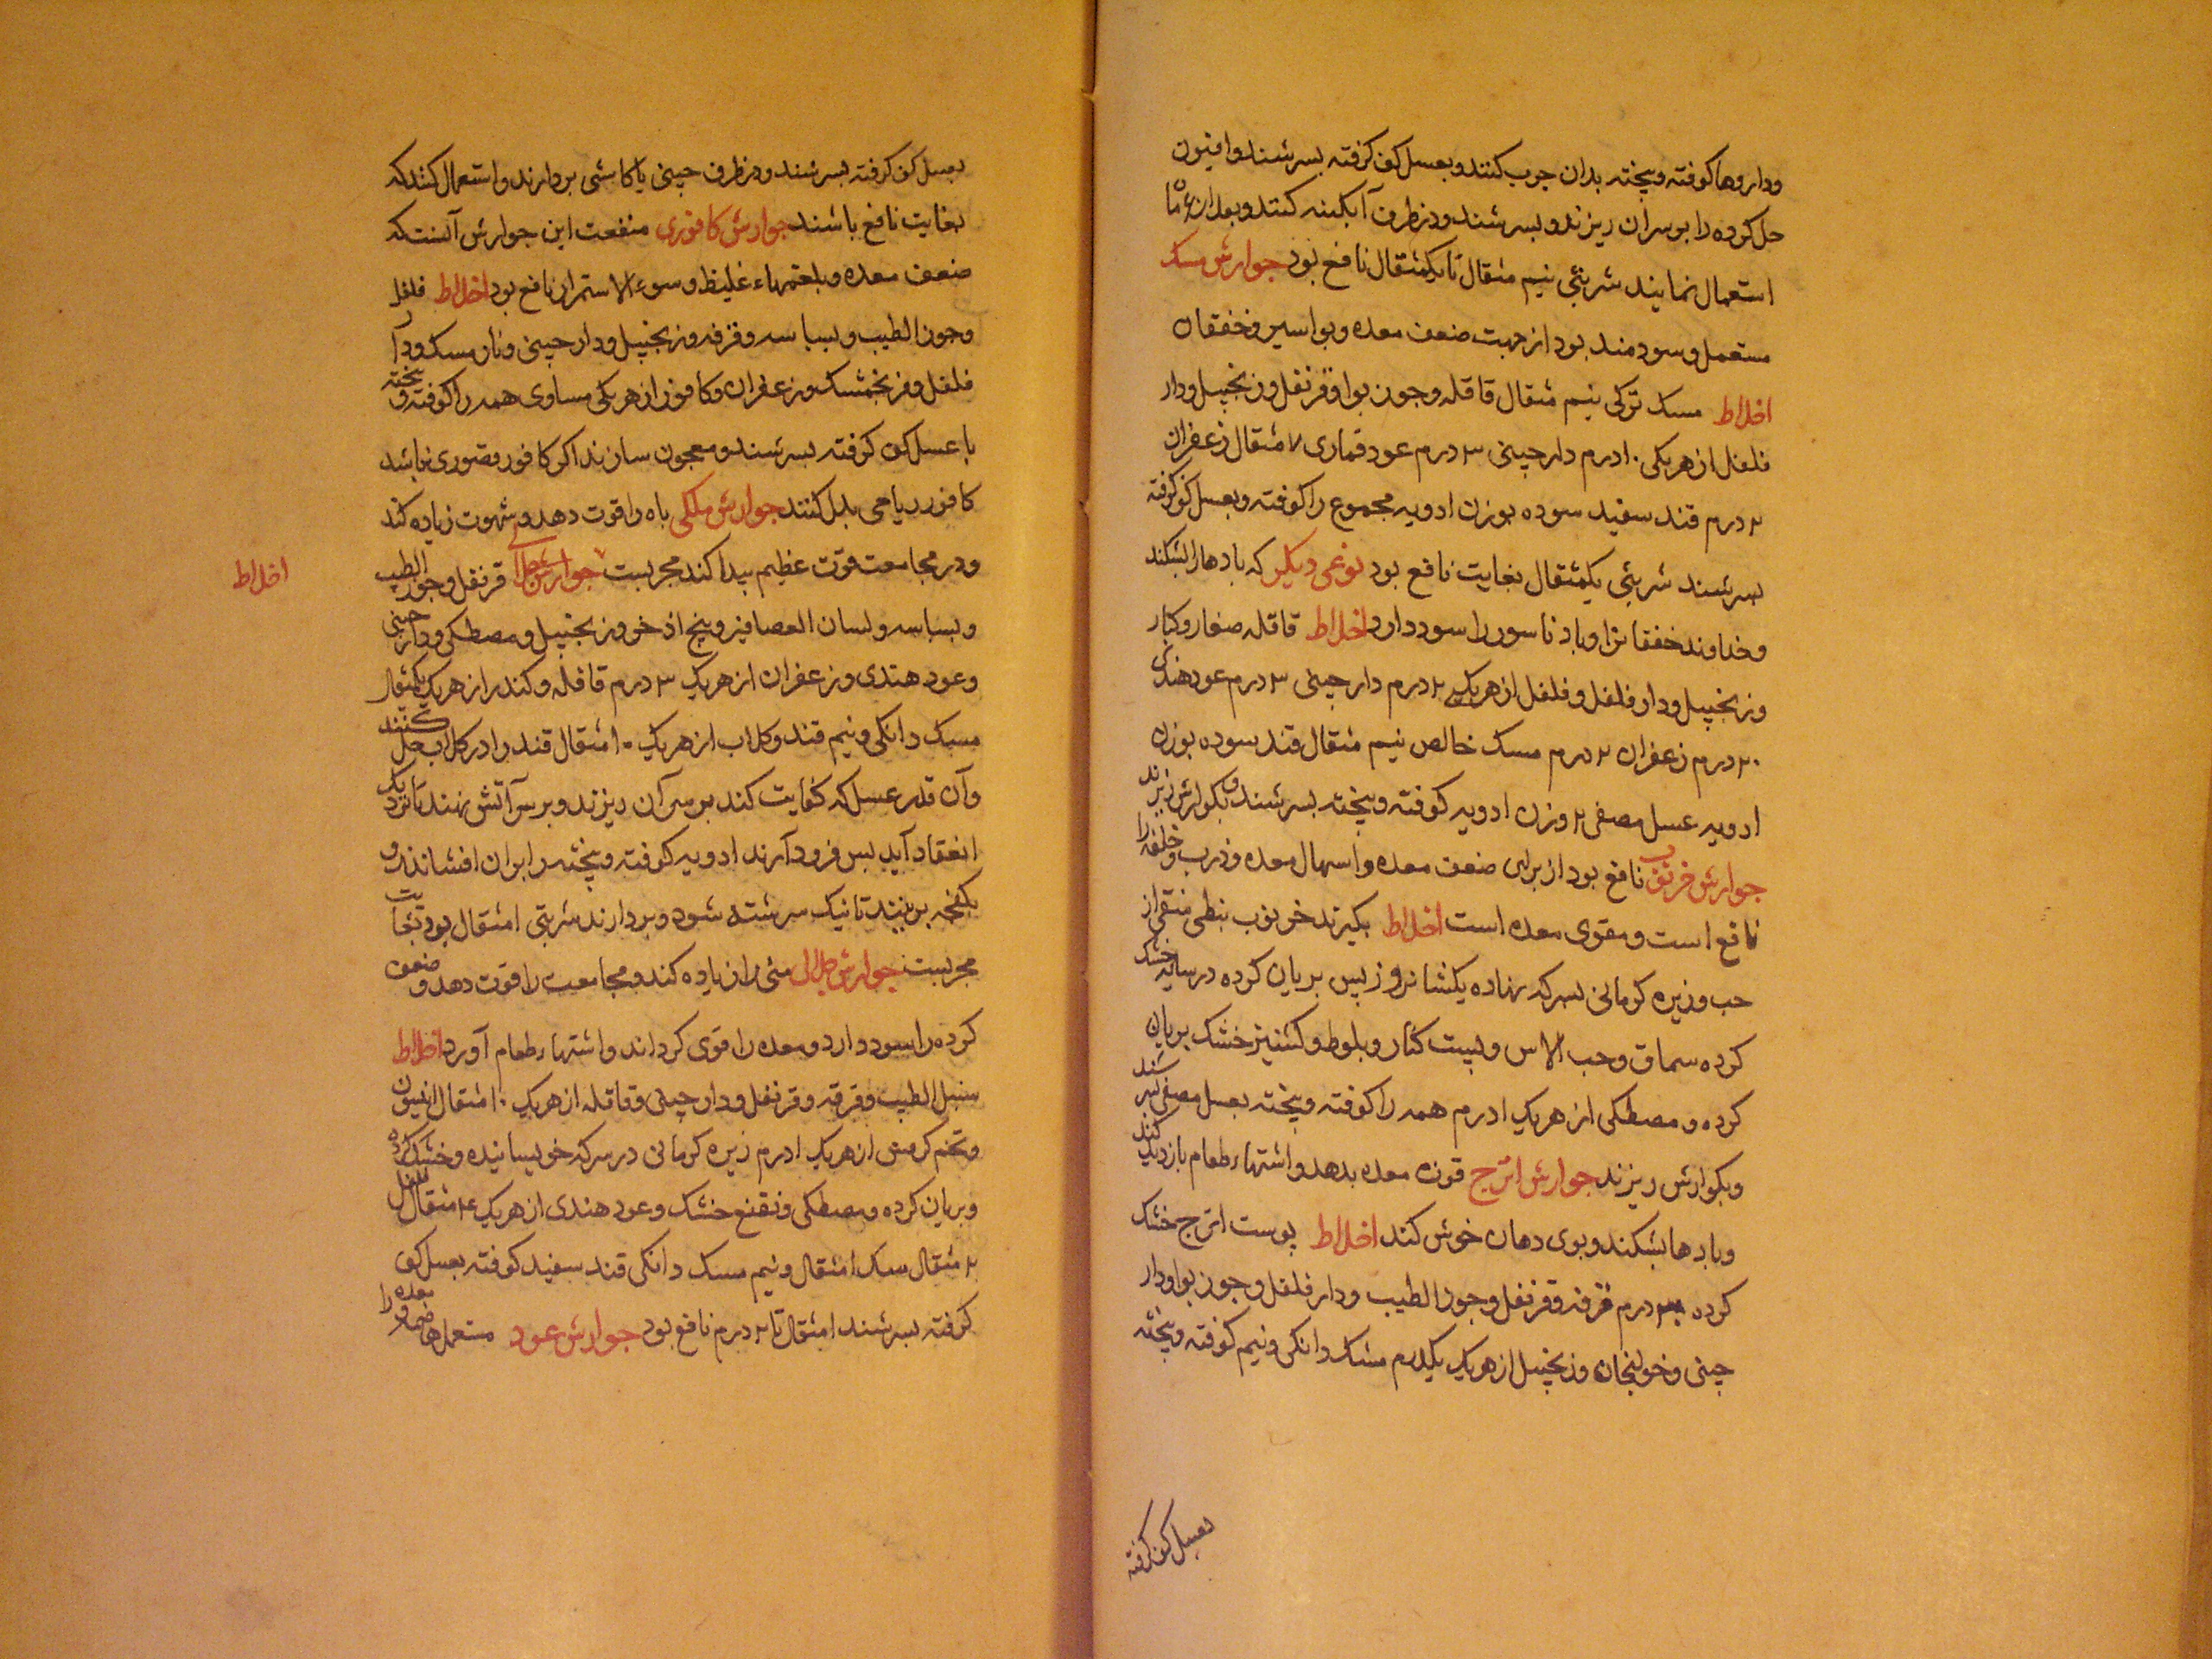 وداروها کوفته و بیخته بدان چرب کنند و بعسل کف کرفته بسرشند و افیون
حل کرده را بر سر آن ریزند و بسرشند و در ظرف آبکینه کنند و بعد از ۶ ماه
استعمال نمایند شربتی نیم مثقال تا یکمثقال نافع بود جوارش مسک
مستعمل و سودمند بود از جهت ضعف معده و بواسیر و خفقان
اخلاط مسک ترکی نیم مثقال قاقله و جوز بوا و قرنفل و زنجبیل و دار
فلفل از هریکی ۱۰ درم دارچینی ۳ درم عود قماری ۷ مثقال زعفران
۲ درم قند سفید سوده بوزن ادویه مجموع را کوفته و بعسل کف کرفته
بسرشند شربتی یکمثقال بغایت نافع بود نوعی دیکر که بادها را بشکند
و خداوند خفقانرا و باد ناسور را سود دارد اخلاط قاقله صغار و کبار
و زنجبیل و دار فلفل و فلفل از هریک ۲ درم دارچینی ۳ درم عود هندی
۲۰ درم زعفران ۲ درم مسک خالص نیم مثقال قند سوده بوزن
ادویه عسل مصفی ۲ وزن ادویه کوفته و بیخته بسرشند و بکوارش زیرند
جوارش خرنوب نافع بود از برای ضعف معده و اسهال معده و ذرب و خلفه را
نافع است و مقوی معده است اخلاط بکیرند خرنوب نبطی منقی از
حب و زیره کرمانی بسرکه نهاده یکشانروز پس بریان کرده در سایه خشک
کرده سماق و حب الآس و کنار و بلوط و کشنیز خشک بریان
کرده و مصطکی از هریک ۱ درم همه را کوفته و بیخته بعسل مصفی بسرشند
و بکوارش ریزند جوارش اترج قوت معده بدهد و اشتهاء طعام بازدید کند
و بادها بشکند و بوی دهان خوش کند اخلاط پوست اترج خشک
کرده ۳۰ درم قرفه و قرنفل و جوز الطیب و دار فلفل و جوز بوا و دار
چینی و خولنجان و زنجبیل از هریک یکدرم مشک دانکی و نیم کوفته و بیخته
بعسل کف کرفته
بعسل کف کرفته بسرشند و در ظرف چینی یا کاشی بردارند و استعمال کنند که
بغایت نافع باشند جوارش کافوری منفعت این جوارش آنست که
ضعف معده و بلغمهاء غلیظ و سوء الاستمرا نافع بود اخلاط فلفل
و جوز الطیب و بسباسه و قرفه و زنجبیل و دارچینی و نارمسک و دار
فلفل و فرنجمشک و زعفران و کافور از هریکی مساوی همه را کوفته و بیخته
با عسل کف کرفته بسرشند و معجون سازند اکر کافور قیصوری نباشد
کافور ریاحی بدل کنند جوارش ملکی باه را قوت دهد و شهوت زیاده کند
و در مجامعت قوت عظیم پیدا کند مجربست قرنفل و جوز الطیب
اخلاط
و بسباسه و لسان العصافیر و بیخ اذخر و زنجبیل و مصطکی و دارچینی
و عود هندی و زعفران از هریک ۳ درم قاقله و کندر از هریک یکمثقال
مسک دانکی و نیم قند و کلاب از هریک ۱۰ مثقال قند را در کلاب حل کنند
و آن قدر عسل که کفایت کند بر سر آن ریزند و بر سر آتش نهند تا نزدیک
انعقاد آید پس فرود آرند ادویه کوفته و بیخته را بران افشانند و
بکفچه بزنند تا نیک سرشته شود و بردارند شربتی ۱ مثقال بود
مجربست جوارش جلالی منی را زیاده کند و مجامعت را قوت دهد و ضعف
کرده را سود دارد و معده را قوی کرداند و اشتهاء طعام آورد اخلاط
سنبل الطیب و قرفه و قرنفل و دارچینی و قاقله از هریک ۱۰ مثقال انیسون
و تخم کرفس از هریک ۱ درم زیره کرمانی در سرکه خویسانیده و خشک کرده
و بریان کرده و مصطکی و نعنع خشک و عود هندی از هریک ۴ مثقال
۲ مثقال سک ۱ مثقال و نیم مسک دانکی قند سفید کوفته بعسل کف
کرفته بسرشند ۱ مثقال تا ۲ درم نافع بود جوارش عود مستعمل هاضمه و معده را